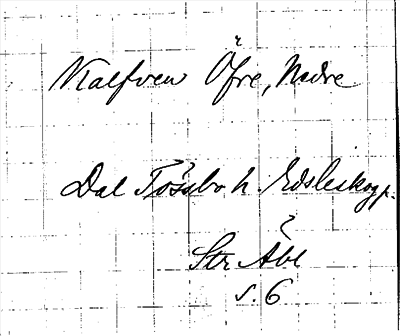 Kalfven Öfre, Nedre
Dal Tössbo h. Edsleskogs.
Str Åbl
s. 6